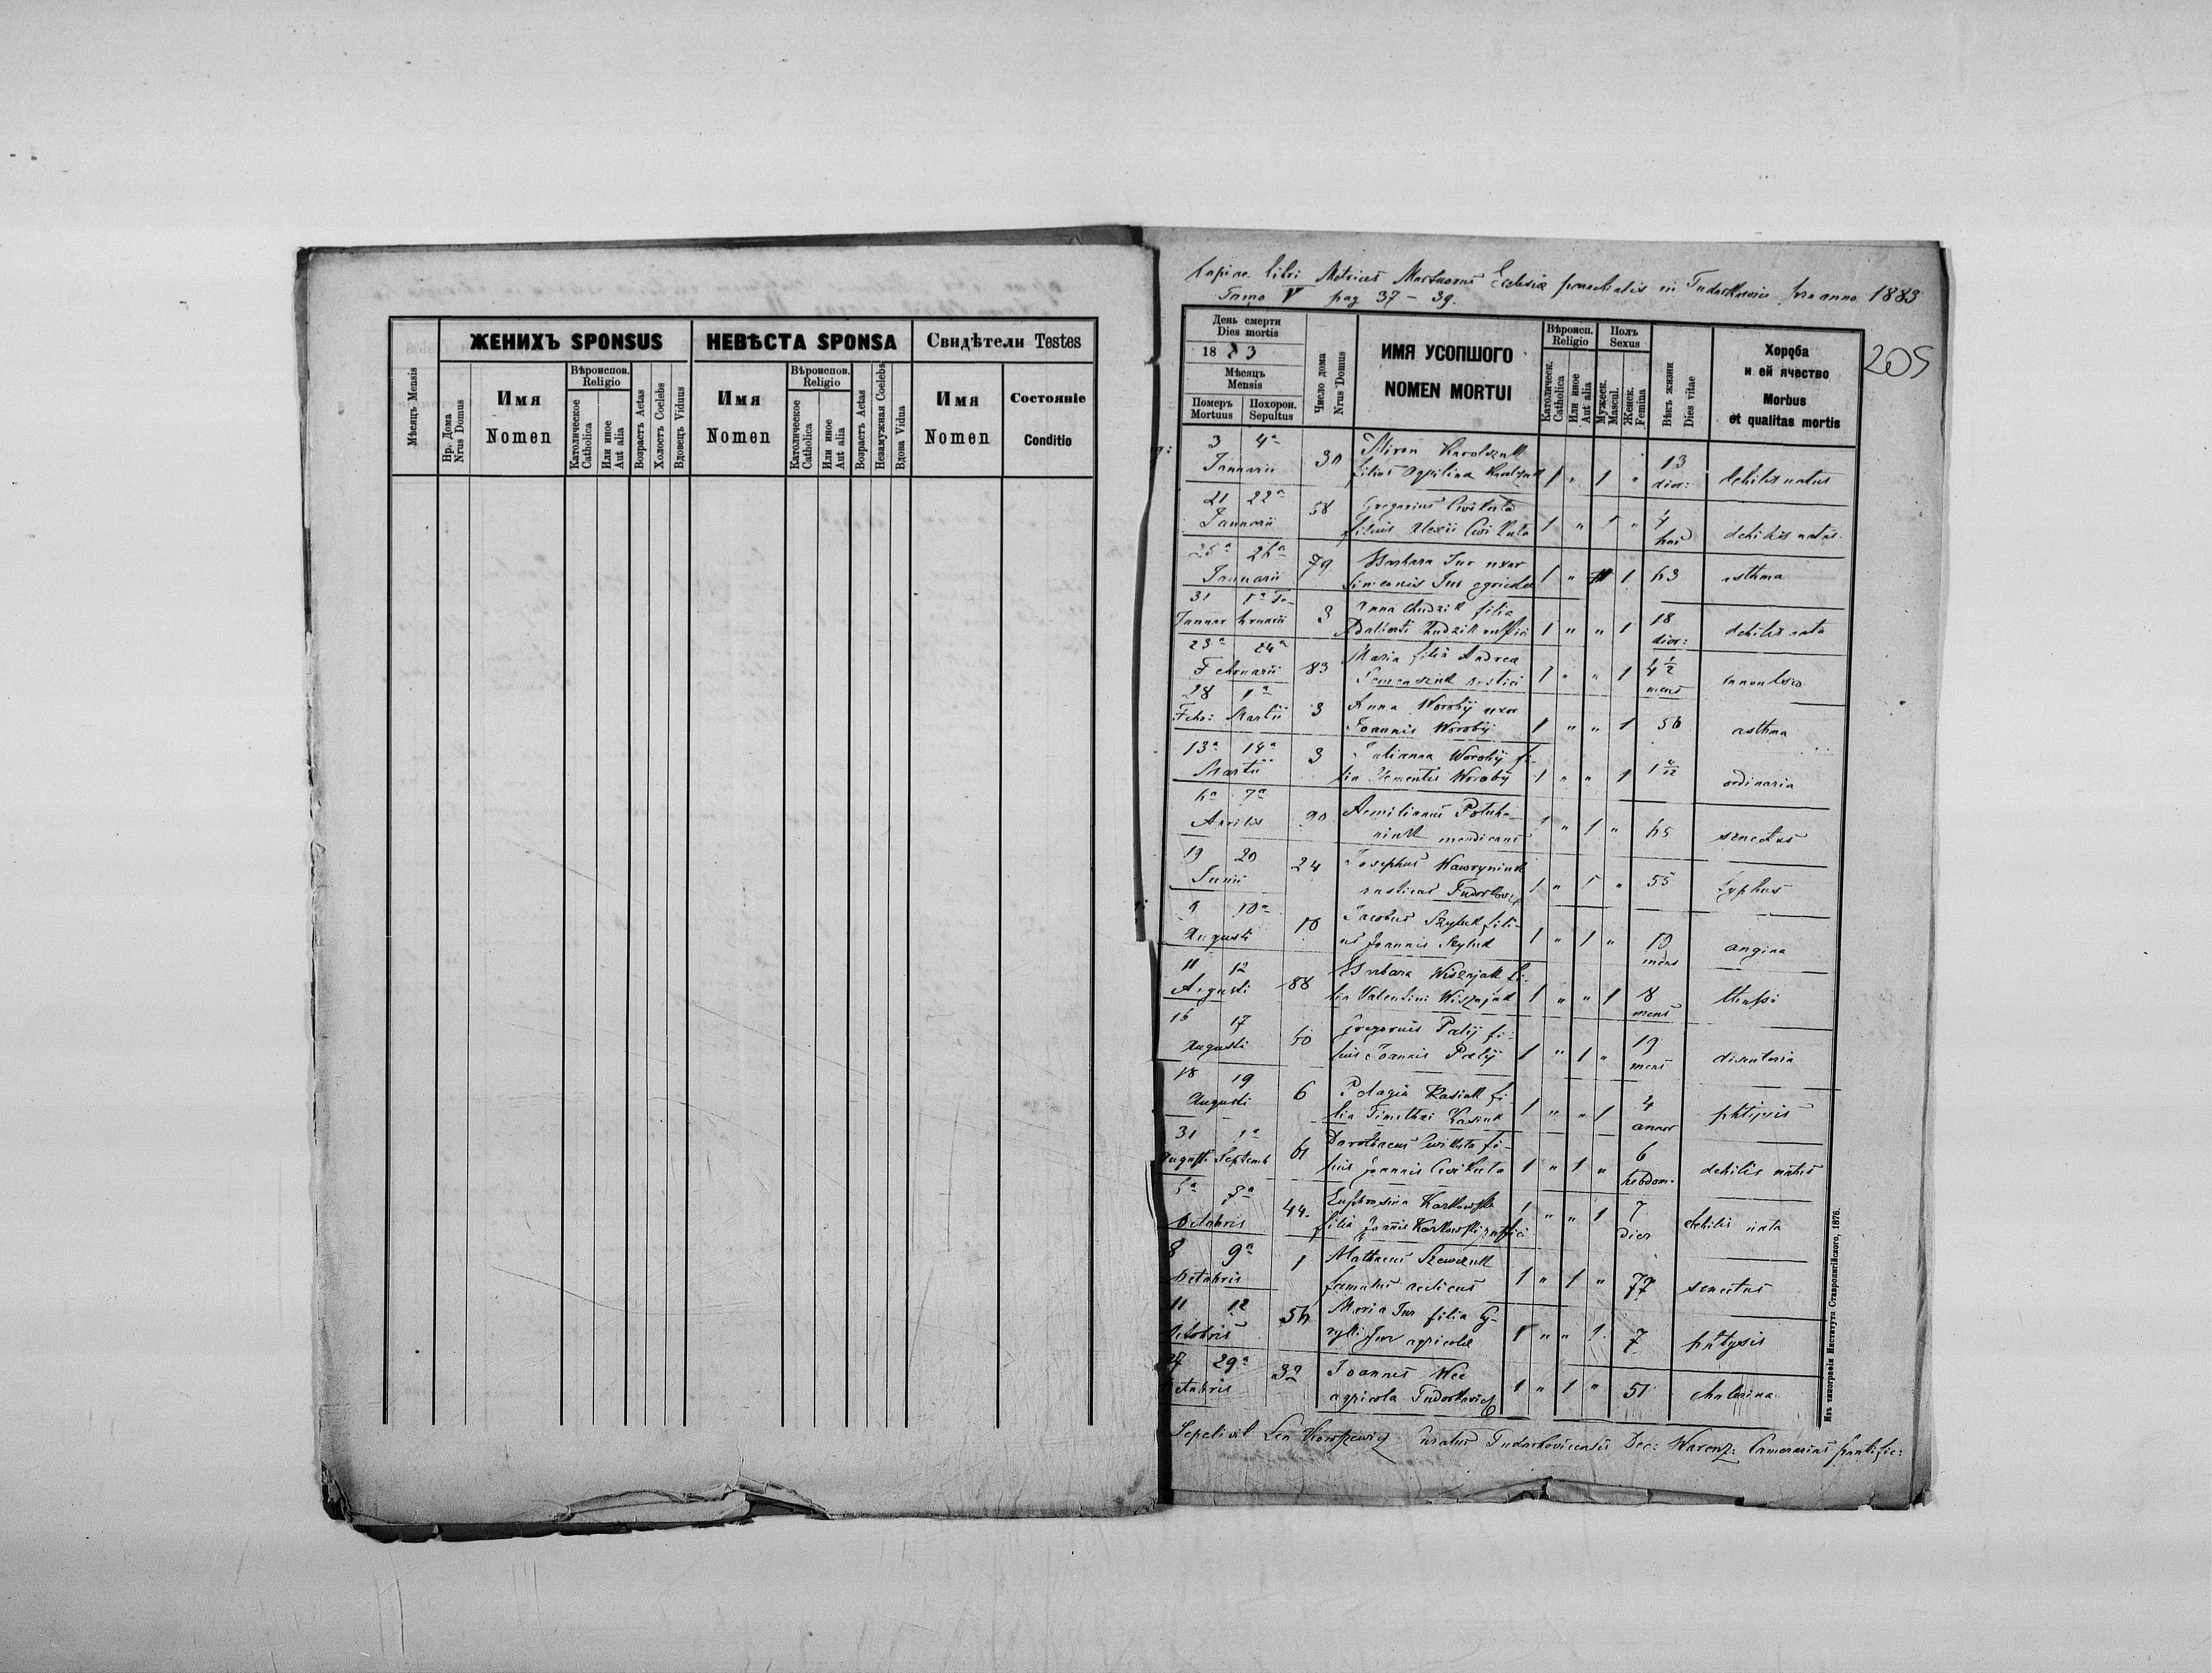 ЖЕНИХЪ SPONSUS
НЕВѢСТА SPONSA
Свидѣтели Testes
Мѣсяцъ Mensis
Нр. Дома
Nrus Domus
Имя
Nomen
Вѣроиспов.
Religio
Католическое
Catholica
Или иное
Aut alia
Возрастъ Aetas
Холостъ Coelebs
Вдовецъ Viduus
Имя
Nomen
Вѣроиспов.
Religio
Католическое
Catholica
Или иное
Aut alia
Возрастъ Aetas
Незамужная Coelebs
Вдова Vidua
Имя
Nomen
Состояніе
Conditio
Copia libri Metrices Mortuorum Ecclesiæ parochialis in Tudorkowice pro anno 1883
Tomo V pag 37 – 39.
205
День смерти
Dies mortis
1883
Мѣсяцъ
Mensis
Померъ
Mortuus
Похорон.
Sepultus
Число дома
Nrus Domus
ИМЯ УСОПШОГО
NOMEN MORTUI
Вѣроисп.
Religio
Католическ.
Catholica
Или иное
Aut alia
Полъ
Sexus
Мужеск.
Mascul.
Женск.
Femina
Вѣкъ жизни
Dies vitae
Хороба
и ей ячество
Morbus
et qualitas mortis
3 4a Januarii Miron
filius 1 " 1 " 13 dier: debilis natus
21 22a Januarii 58 Gregorius Cwikuta
filius Alexii Cwikuta 1 " 1 " 4 debilis natus
25a 26a Januarii 79 Barbara Jur uxor
Simeonis Jur agricolae 1 " 1 63 asthma
31 Januar 1a Februarii 3 Anna Chudzik filia
Adalberti Chudzik rustici 1 " " 1 18 dier: debilis nata
23a 24a Februarii 83 Maria filia Andreæ
rustici 1 " " 1 4 1/2 mens
28 Febr: 1a Martii 3 Anna Worobij uxor
Joannis Worobij 1 " " 1 56 asthma
13a 14a Martii 3 Julianna Worobij fi-
lia Clementis Worobij 1 " " 1 ordinaria
6a 7a Aprilis 20 Aemilianus
mendicans 1 " 1 " 65 senectus
19 20 Junii 24 Josephus Wawryniuk
rusticus 1 " 1 " 55 typhus
9 10a Augusti 10 Jacobus Szyluk fili-
us Joannis Szyluk 1 " 1 " mens angina
11 12 Augusti 88 Barbara Wisznjak fi-
lia Valentini Wisznjak 1 " " 1 8 mens
16 17 Augusti 50 Gregorius Palij fi-
lius Joannis Palij 1 " 1 " 19 mens disenteria
18 19 Augusti 6 Pelagia Kasiuk fi-
lia Timothei Kasiuk 1 " " 1 4 annor phtysis
31 Augusti 1a Septemb 61 Dorotheus Cwikuta fi-
lius Joannis Cwikuta 1 " 1 " 6 hebdom. debilis natus
Octobris 44. Euphrosina Karkowska
filia Joannis Karkowski rustici 1 " " 1 7 dier debilis nata
8 9a Octobris 1 Mathaeus Szewczuk
famulus 1 " 1 " 77 senectus
11 12 Octobris 56 Maria Jur filia
Jur agricolæ 1 " " 1 7 phtysis
27 29a Octobris 32 Joannes Wec
agricola Tudorkovice 1 " 1 " 51 cholerina
Sepelivit Leo Curatus Tudorkovicensis Dec: Warenz: Camerarius pontific:
Изъ типографіи Института Ставропигійского, 1876.